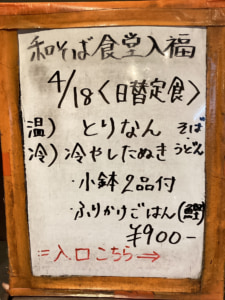 和そば食堂入福
4/18〈日替定食〉
温）とりなん そば
冷）冷やしたぬき うどん
・小鉢2品付
・ふりかけごはん(鰹)
¥900-
入口こちら→